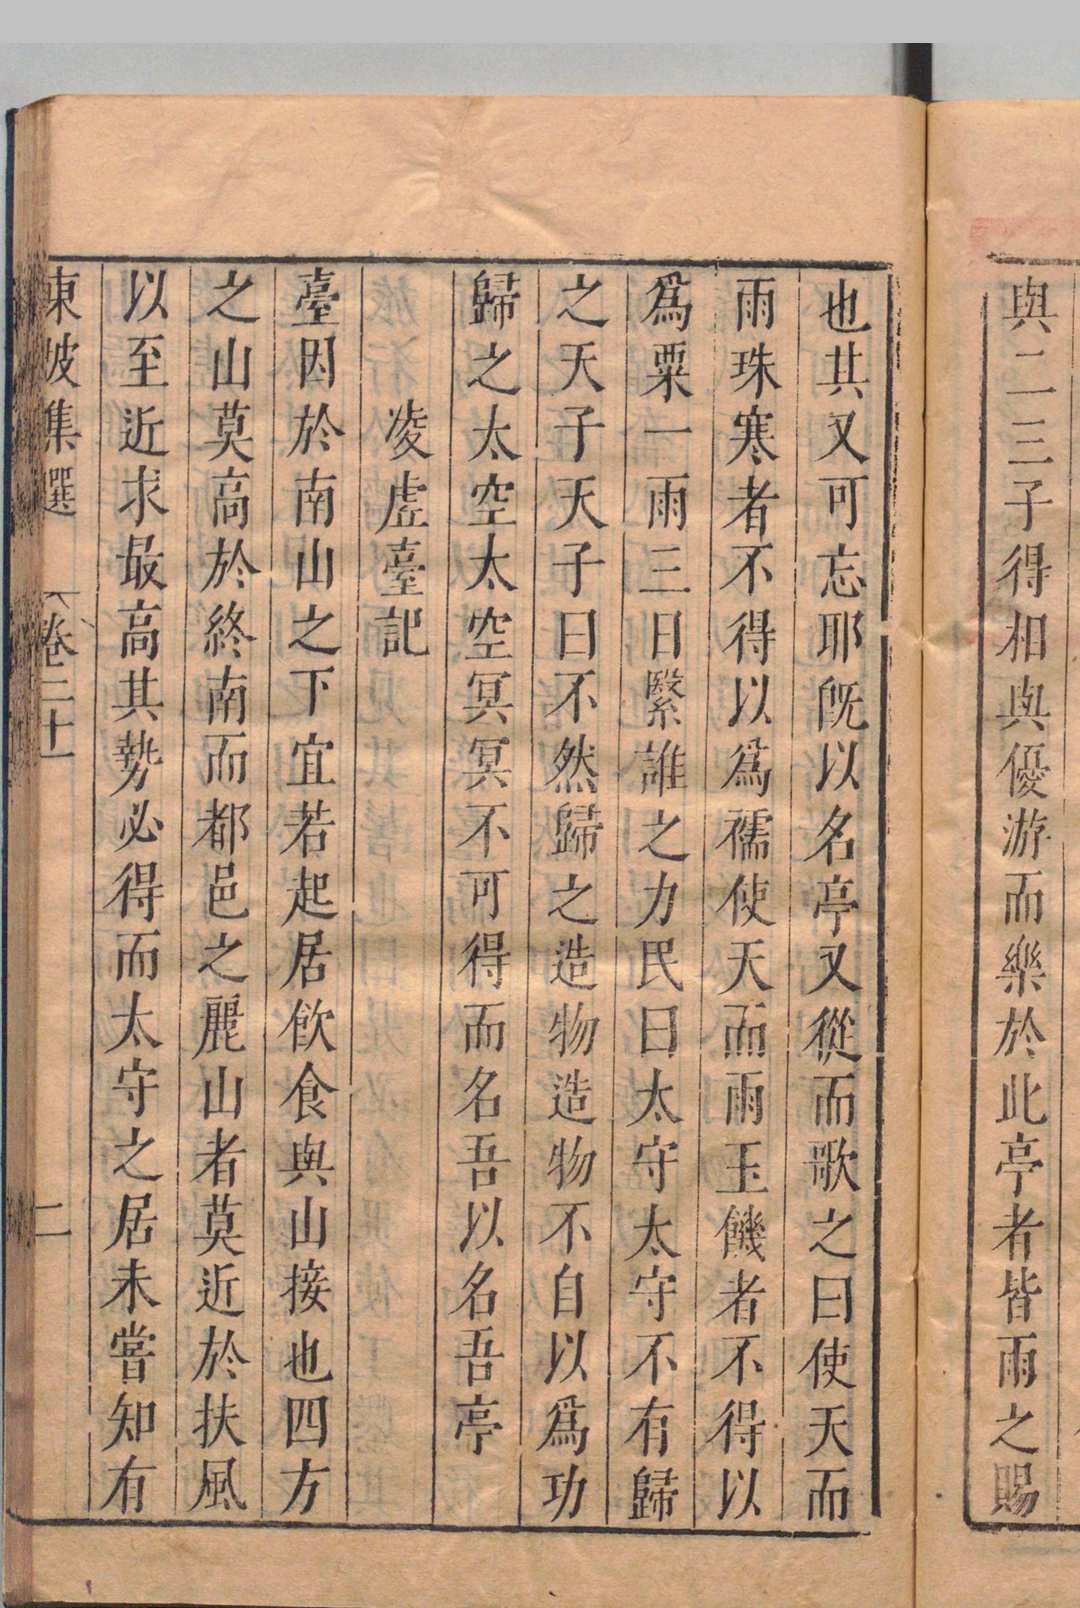 與二三子得相與優游而樂於此亭者皆雨之賜
也其又可忘耶旣以名亭又從而歌之曰使天而
雨珠寒者不得以爲襦使天而雨玉饑者不得以
爲粟一雨三日繄誰之力民曰太守太守不有歸
之天子天子曰不然歸之造物造物不自以爲功
歸之太空太空冥冥不可得而名吾以名吾亭
凌虛臺記
臺因於南山之下宜若起居飲食與山接也四方
之山莫高於終南而都邑之麗山者莫近於扶風
以至近求最高其勢必得而太守之居未嘗知有
東坡集選 卷二十 二